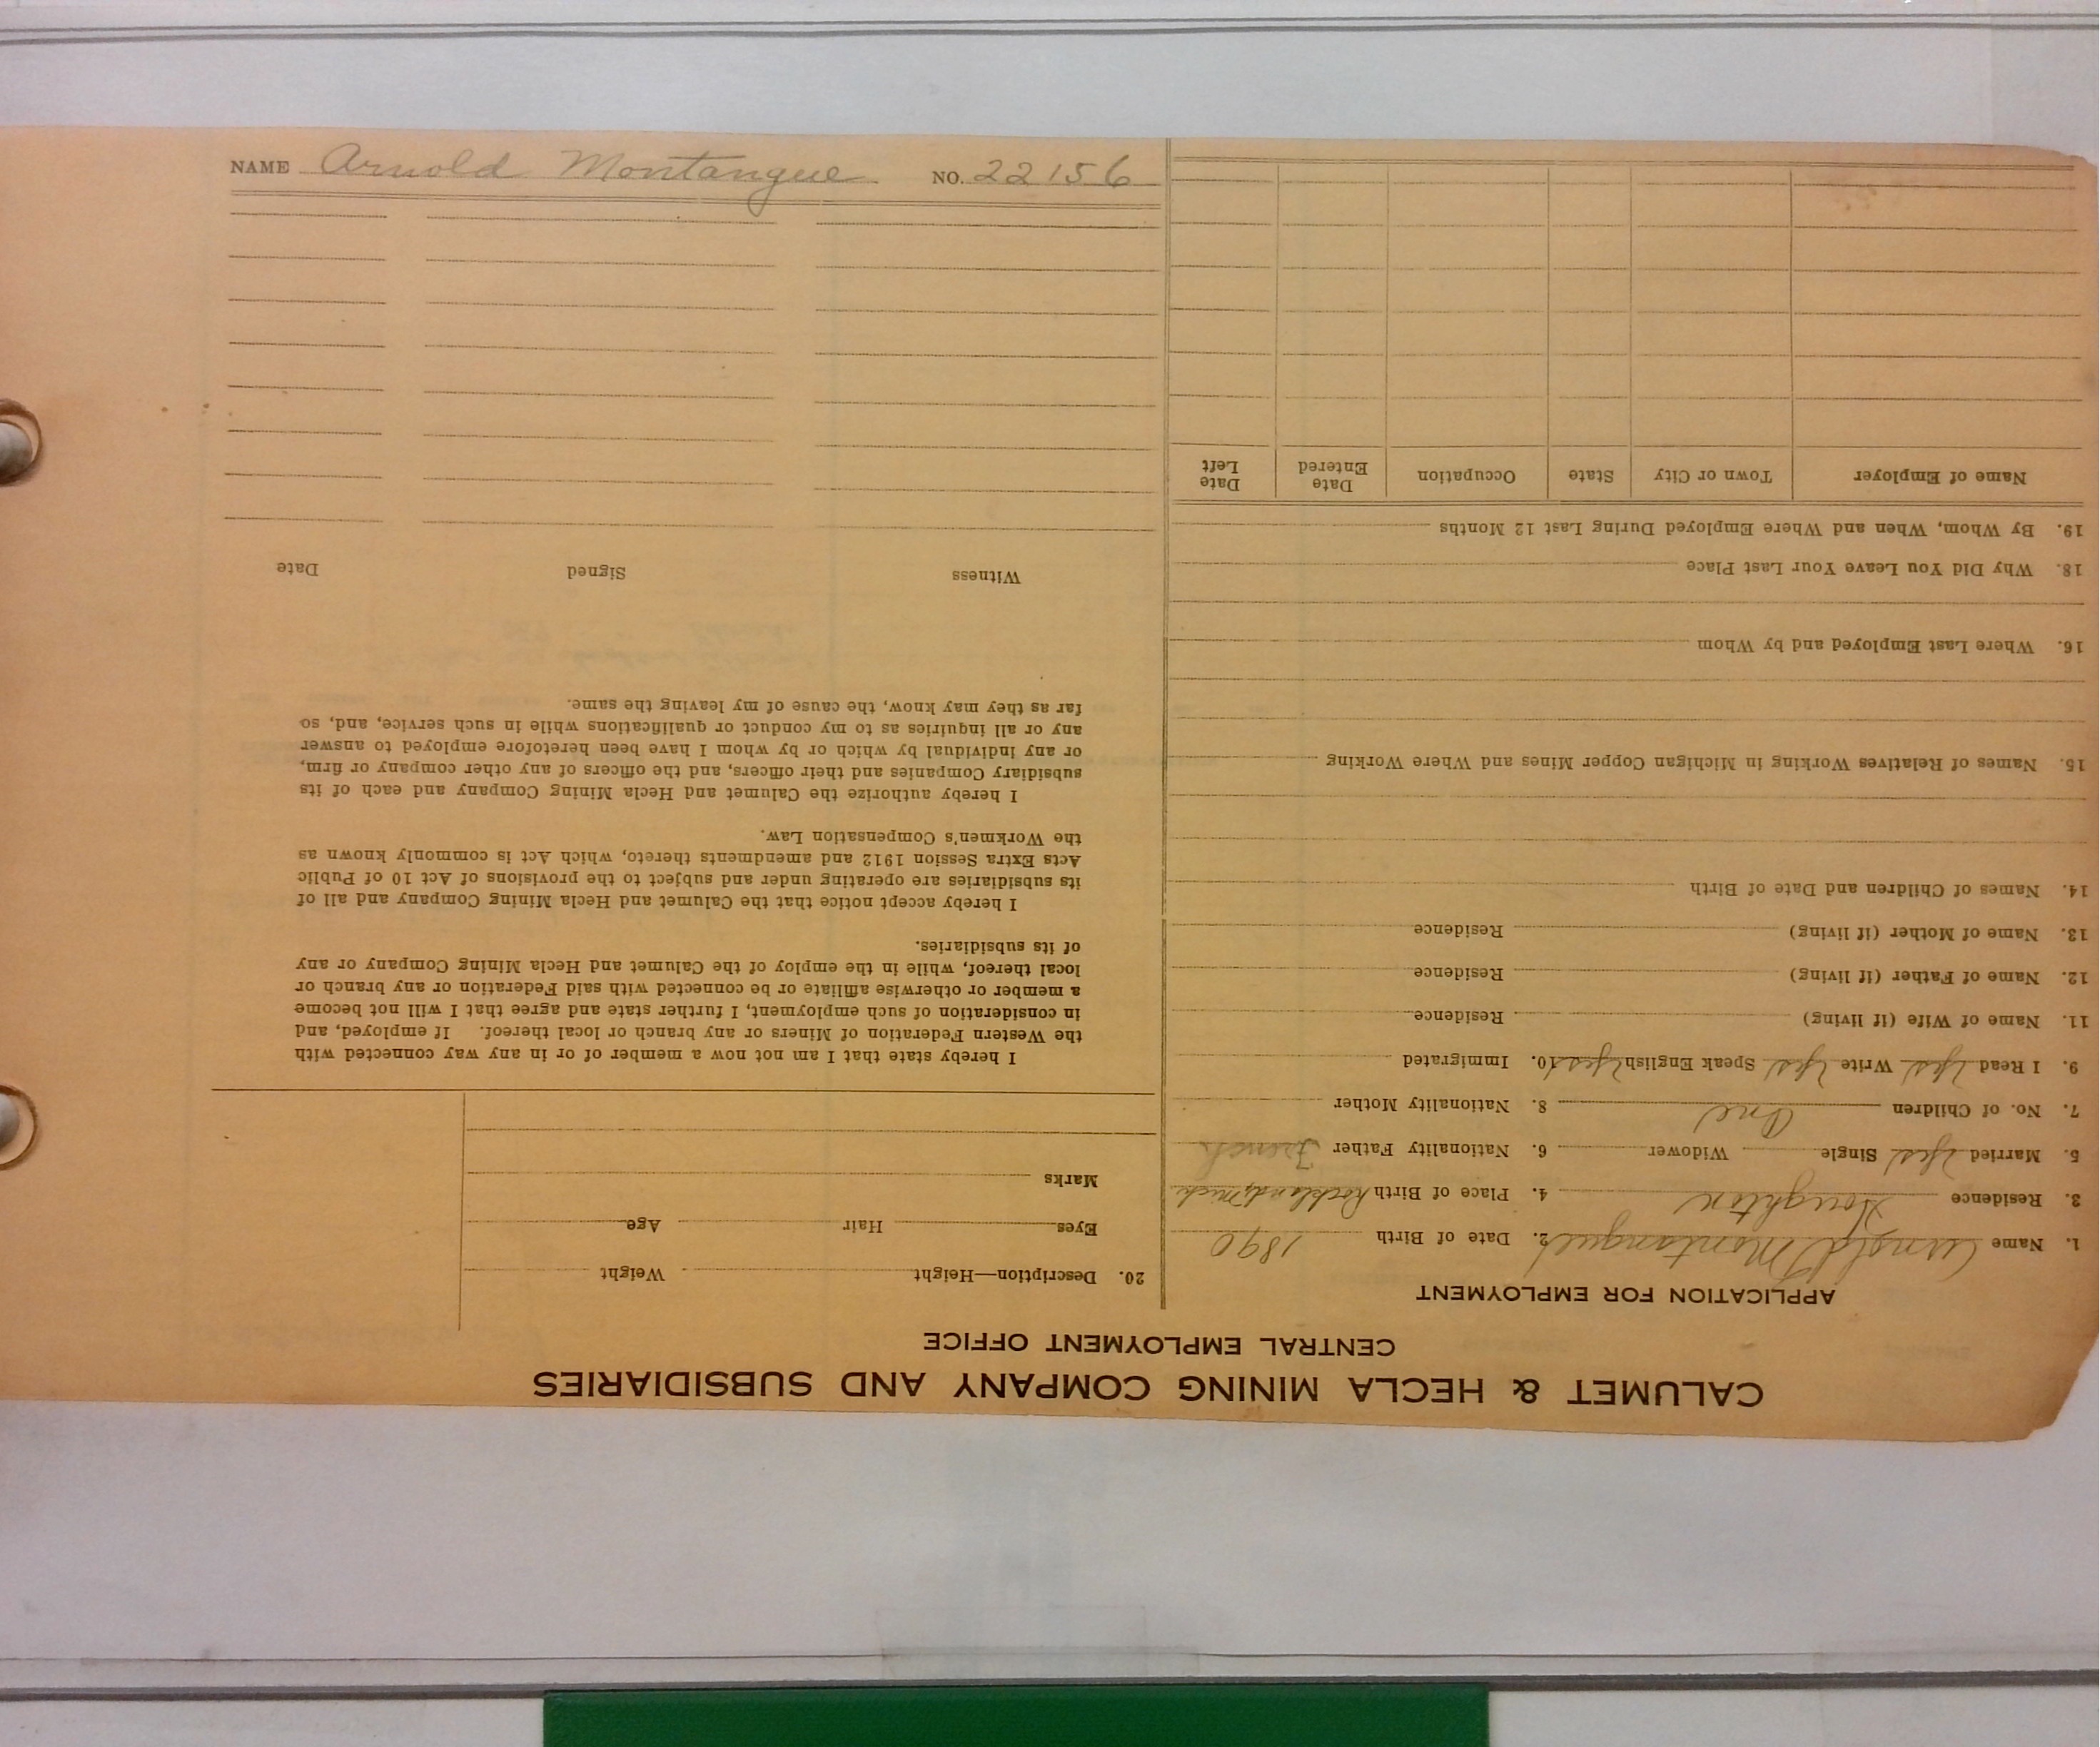 NAME Arnold Montangue NO. 22156
CALUMET & HECLA MINING COMPANY AND SUBSIDIARIES
CENTRAL EMPLOYMENT OFFICE
APPLICATION FOR EMPLOYMENT
1. Name Arnold Montangue 2. Date of Birth 1890
3. Residence Houghton 4. Place of Birth Rockland, Mich
5. Married Yes Single Widower 6. Nationality Father French
7. No. of Children One 8. Nationality Mother
9. I Read Yes Write Yes Speak English Yes 10. Immigrated
11. Name of Wife (if living) Residence
12. Name of Father (if living) Residence
13. Name of Mother (if living) Residence
14. Names of Children and Date of Birth
15. Names of Relatives Working in Michigan Copper Mines and Where Working
16. Where Last Employed and by Whom
18. Why Did You Leave Your Last Place
19. By Whom, When and Where Employed During Last 12 Months
Name of Employer Town or City State Occupation Date Entered Date Left
20. Description—Height Weight
Eyes Hair Age
Marks
I hereby state that I am not now a member of or in any way connected with
the Western Federation of Miners or any branch or local thereof. If employed, and
in consideration of such employment, I further state and agree that I will not become
a member or otherwise affiliate or be connected with said Federation or any branch or
local thereof, while in the employ of the Calumet and Hecla Mining Company or any
of its subsidiaries.
I hereby accept notice that the Calumet and Hecla Mining Company and all of
its subsidiaries are operating under and subject to the provisions of Act 10 of Public
Acts Extra Session 1912 and amendments thereto, which Act is commonly known as
the Workmen's Compensation Law.
I hereby authorize the Calumet and Hecla Mining Company and each of its
subsidiary Companies and their officers, and the officers of any other company or firm,
or any individual by which or by whom I have been heretofore employed to answer
any or all inquiries as to my conduct or qualifications while in such service, and, so
far as they may know, the cause of my leaving the same.
Witness Signed Date